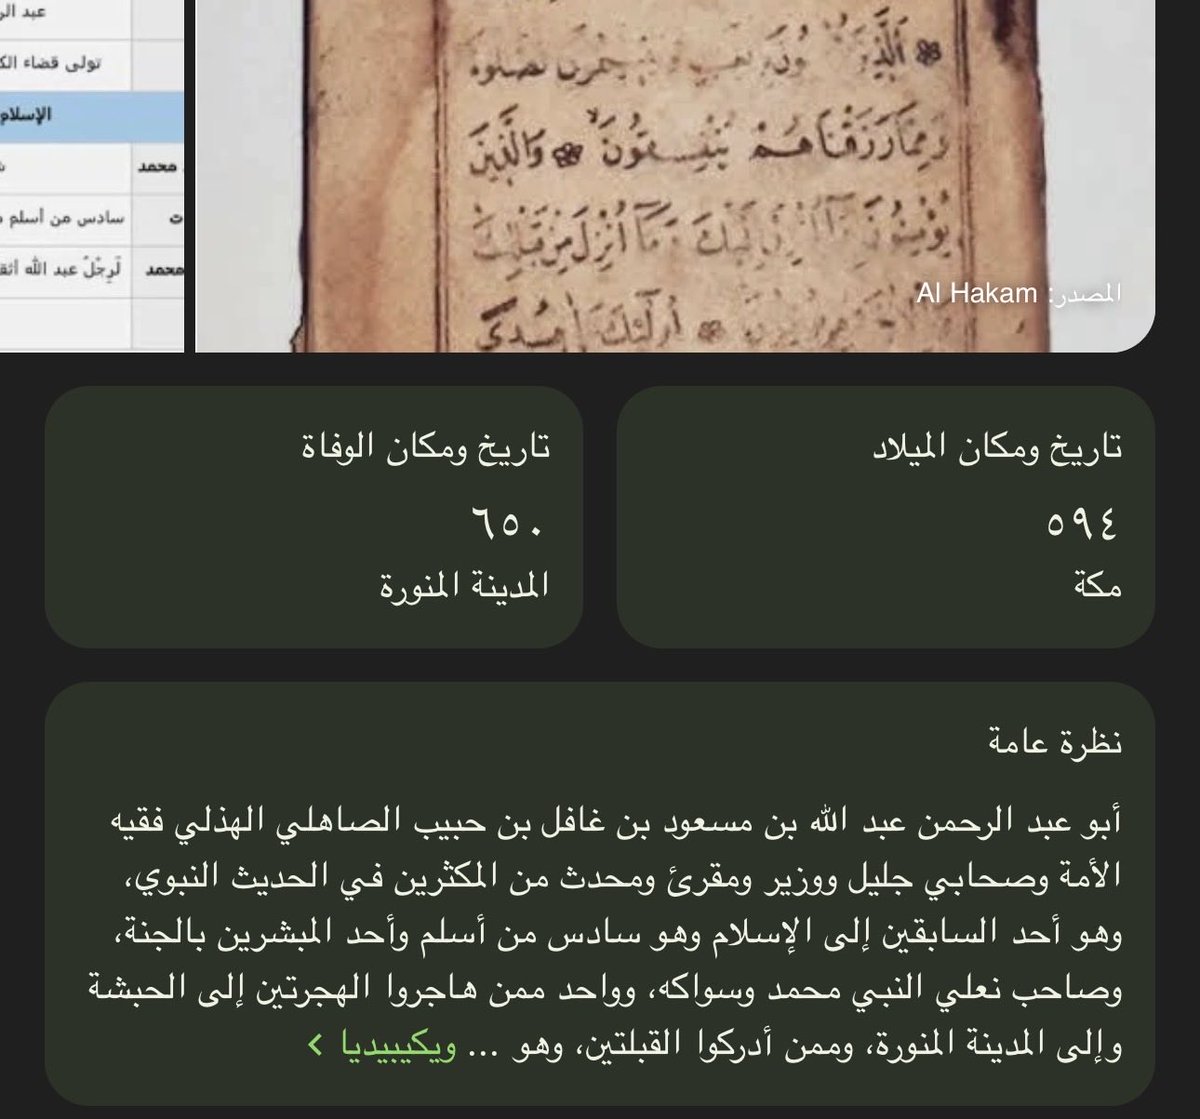 عبد الر
تولى قضاء الك
الإسلام
محمد
سادس من أسلم
محمد
لَرِجْلُ عبد الله أثق
وَمِمَّا رَزَقْنَاهُمْ يُنْفِقُونَ وَالَّذِينَ
يُؤْمِنُونَ إِلَيْكَ وَمَا أُنْزِلَ مِنْ قَبْلِكَ
أُولَئِكَ
المصدر: Al Hakam
تاريخ ومكان الميلاد
٥٩٤
مكة
تاريخ ومكان الوفاة
٦٥٠
المدينة المنورة
نظرة عامة
أبو عبد الرحمن عبد الله بن مسعود بن غافل بن حبيب الصاهلي الهذلي فقيه
الأمة وصحابي جليل ووزير ومقرئ ومحدث من المكثرين في الحديث النبوي،
وهو أحد السابقين إلى الإسلام وهو سادس من أسلم وأحد المبشرين بالجنة،
وصاحب نعلي النبي محمد وسواكه، وواحد ممن هاجروا الهجرتين إلى الحبشة
وإلى المدينة المنورة، وممن أدركوا القبلتين، وهو ... ويكيبيديا >